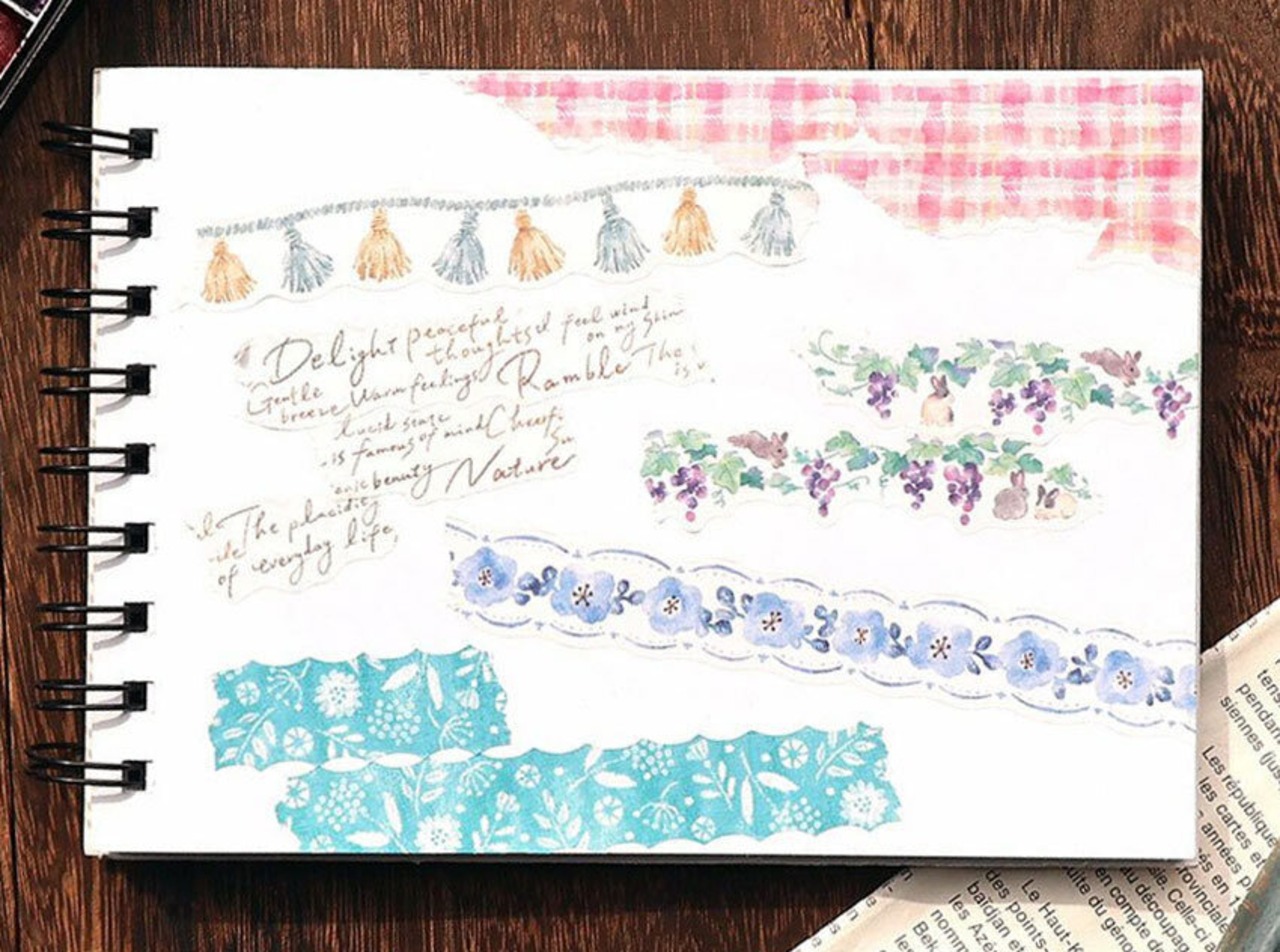 Delight peaceful
thoughts I feel wind
on my skin
Gentle
breeze Warm feelings Ramble The
is
lucid sense
is famous of mind Cheerf
beauty Nature
The placidity
of everyday life,
tens
pendan
siennes (ju
Les république
les cartes et
années p
és en 1
rovinciale
sie. Celle-ci
au découpa
en compte
uite du gén
Le Haut-
des points
baïdjan et
les Azé
nomm
Bek